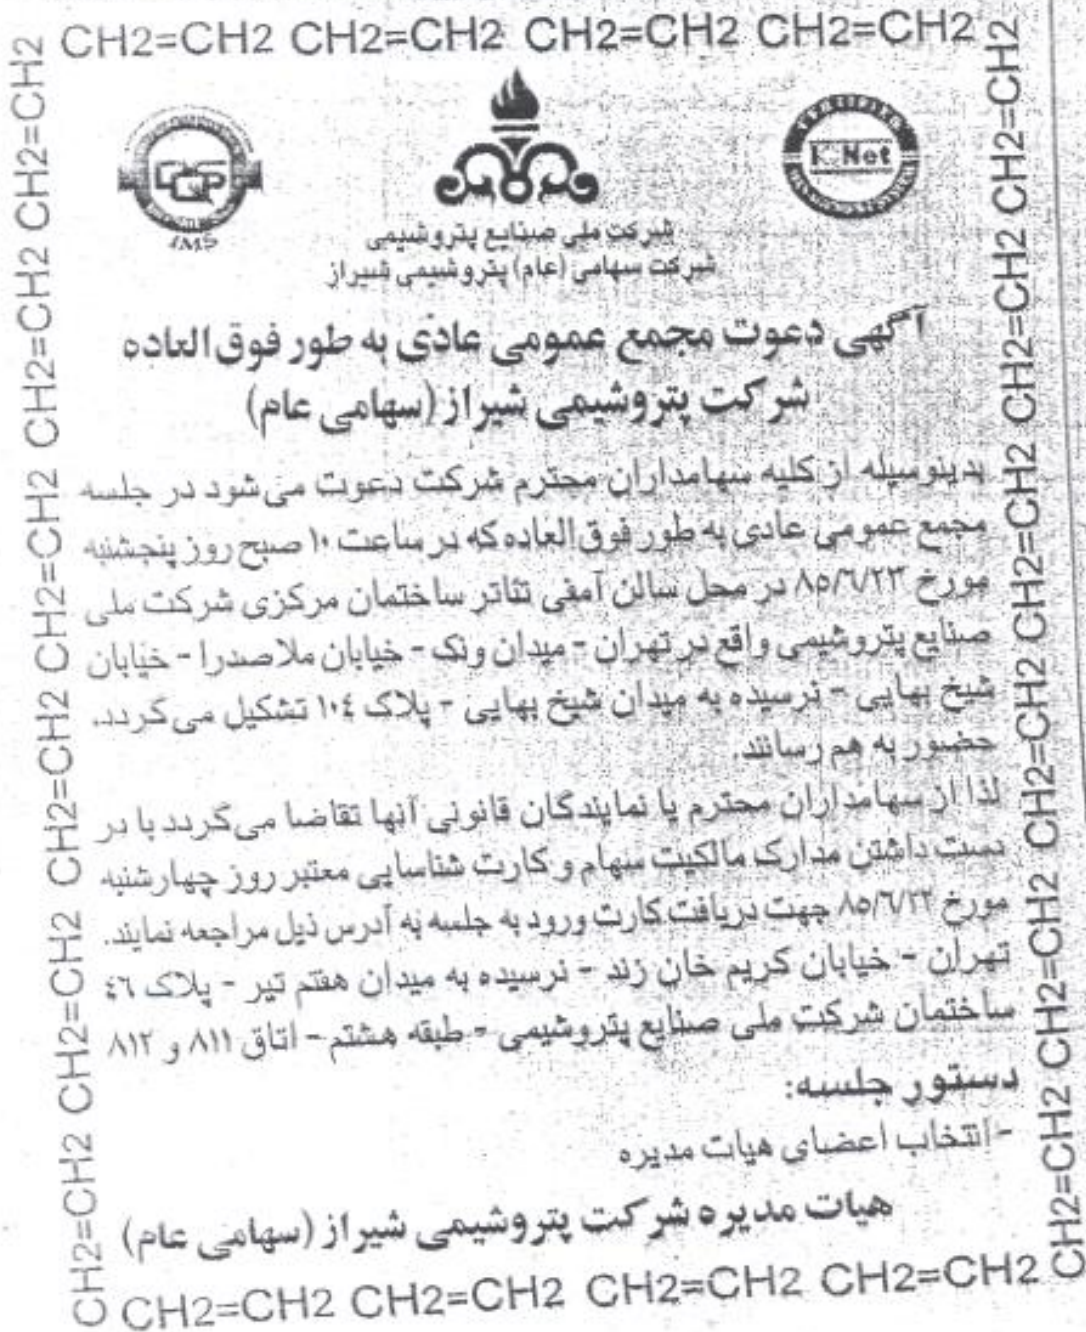 CH2=CH2 CH2=CH2 CH2=CH2 CH2=CH2
CH2=CH2 CH2=CH2 CH2=CH2 CH2=CH2 CH2=CH2 CH2=CH2
CH2=CH2 CH2=CH2 CH2=CH2 CH2=CH2 CH2=CH2 CH2=CH2
IMS
CERTIFIED
IQNet
شرکت ملی صنایع پتروشیمی
شرکت سهامی (عام) پتروشیمی شیراز
آگهی دعوت مجمع عمومی عادی به طور فوق العاده
شرکت پتروشیمی شیراز (سهامی عام)
بدینوسیله از کلیه سهامداران محترم شرکت دعوت می شود در جلسه
مجمع عمومی عادی به طور فوق العاده که در ساعت ۱۰ صبح روز پنجشنبه
مورخ ۸۵/۶/۲۳ در محل سالن آمفی تئاتر ساختمان مرکزی شرکت ملی
صنایع پتروشیمی واقع در تهران - میدان ونک - خیابان ملاصدرا - خیابان
شیخ بهایی - نرسیده به میدان شیخ بهایی - پلاک ۱۰٤ تشکیل می گردد.
حضور به هم رسانند.
لذا از سهامداران محترم یا نمایندگان قانونی آنها تقاضا می گردد با در
دست داشتن مدارک مالکیت سهام و کارت شناسایی معتبر روز چهارشنبه
مورخ ۸۵/۶/۲۲ جهت دریافت کارت ورود به جلسه به آدرس ذیل مراجعه نمایند.
تهران - خیابان کریم خان زند - نرسیده به میدان هفتم تیر - پلاک ٤٦
ساختمان شرکت ملی صنایع پتروشیمی - طبقه هشتم - اتاق ۸۱۱ و ۸۱۲
دستور جلسه:
- انتخاب اعضای هیات مدیره
هیات مدیره شرکت پتروشیمی شیراز (سهامی عام)
CH2=CH2 CH2=CH2 CH2=CH2 CH2=CH2